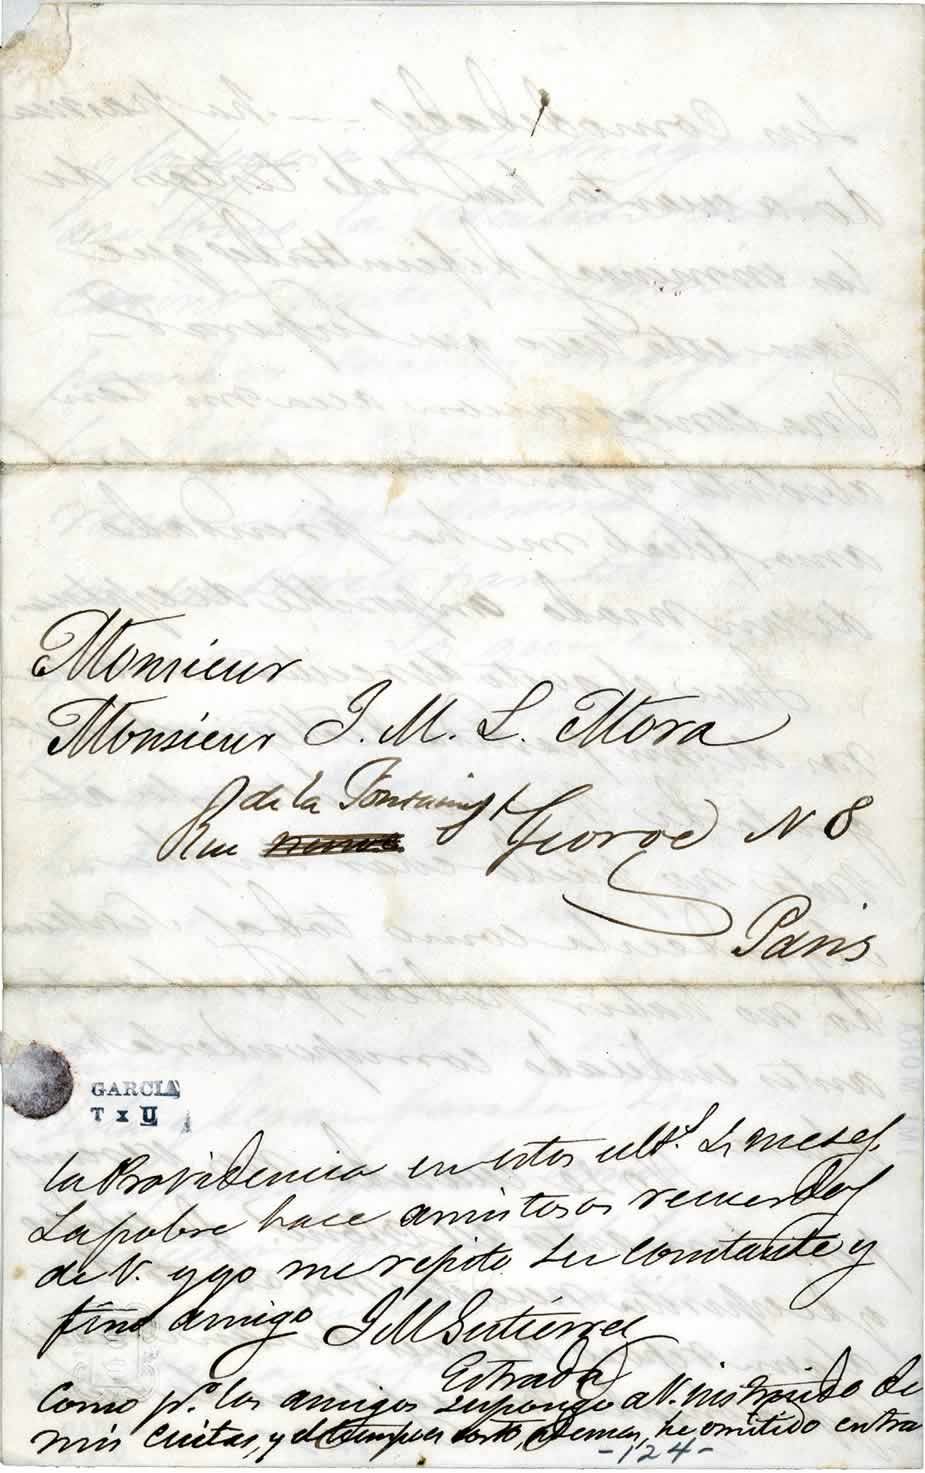 Monsieur
Monsieur J. M. L. Mora
de la Fontaine St
Rue George N 8
Paris
GARCIA
T x II
la Providencia en estos ult.s 2 meses.
La pobre hace amistosos recuerdos
de V. y yo me repito su constante y
fino amigo J M Gutierrez
Estrada
Como p.a los amigos supongo a V. instruido de
mis cuitas, y el tiempo es corto, ademas, he omitido entra
-124-